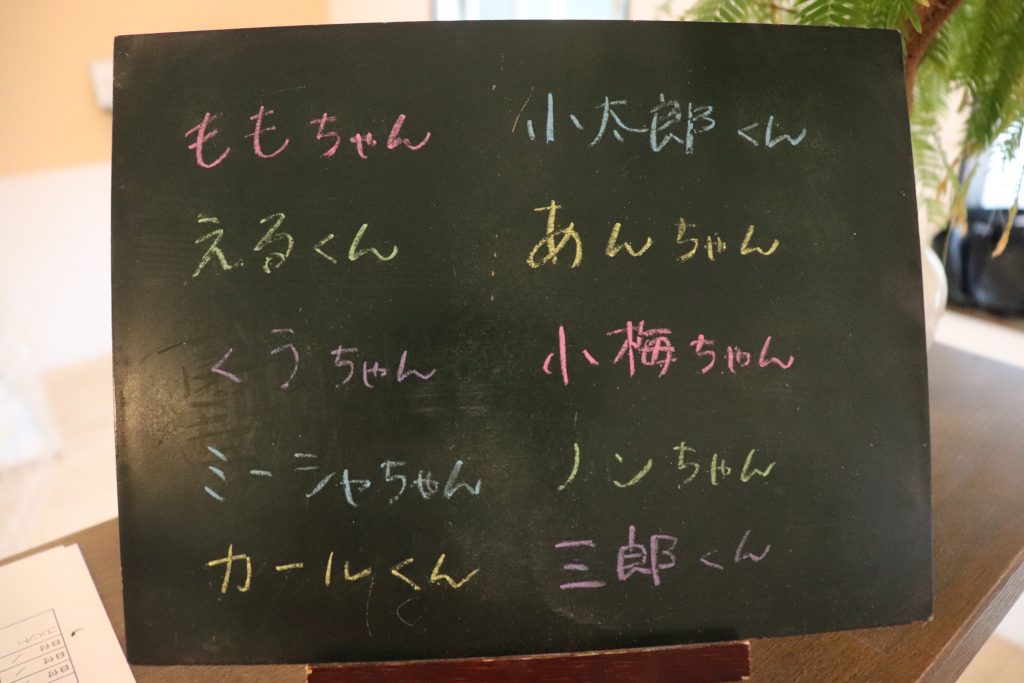 ももちゃん
えるくん
くうちゃん
ミーシャちゃん
カールくん
小太郎くん
あんちゃん
小梅ちゃん
ノンちゃん
三郎くん
コメント
日付
日付
日付